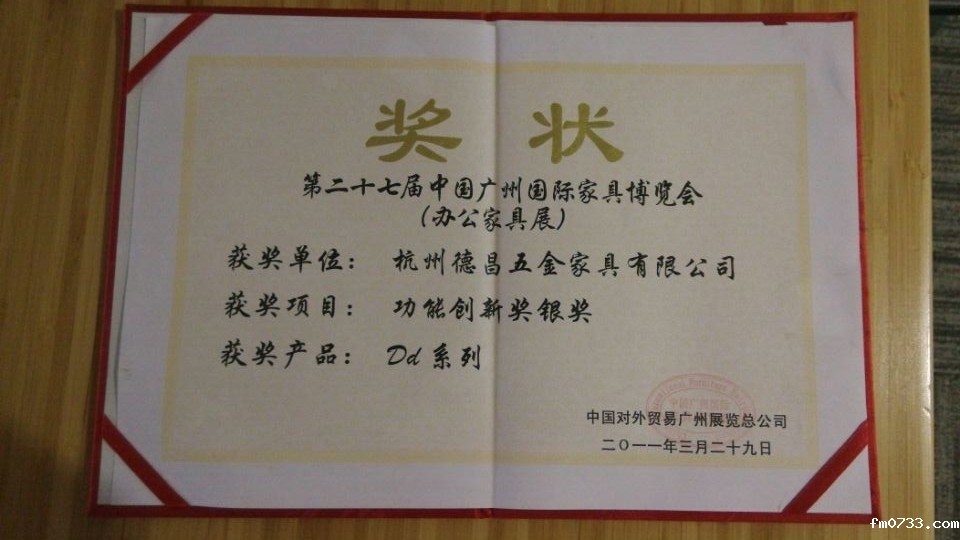 奖 状
第二十七届中国广州国际家具博览会
(办公家具展)
获奖单位： 杭州德昌五金家具有限公司
获奖项目： 功能创新奖银奖
获奖产品： Dd 系列
中国对外贸易广州展览总公司
二〇一一年三月二十九日
fm0733.com